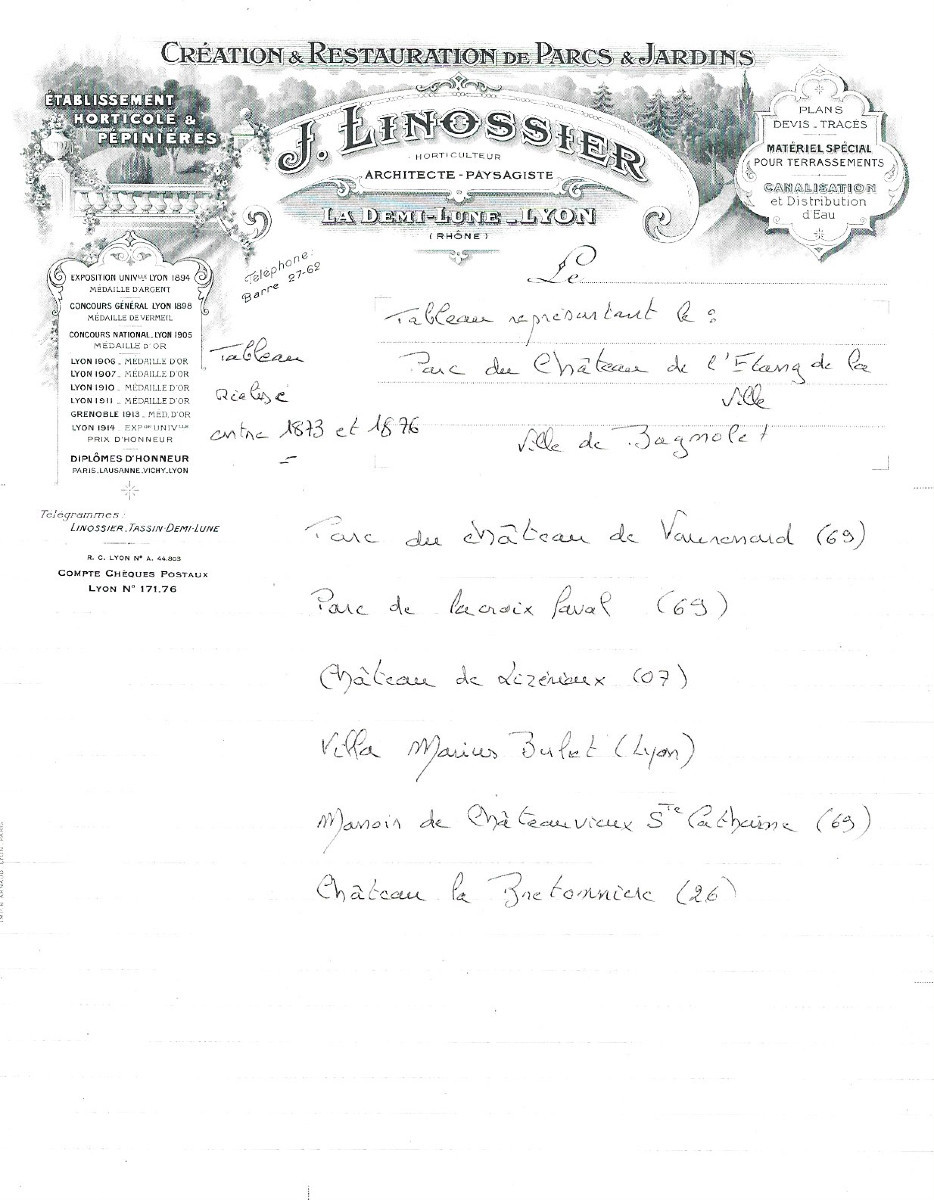 CRÉATION & RESTAURATION DE PARCS & JARDINS
ÉTABLISSEMENT
HORTICOLE &
PÉPINIÈRES
J. LINOSSIER
HORTICULTEUR
ARCHITECTE-PAYSAGISTE
LA DEMI-LUNE_LYON
(RHÔNE)
PLANS
DEVIS_TRACÉS
MATÉRIEL SPÉCIAL
POUR TERRASSEMENTS
CANALISATION
et Distribution
d'Eau
Téléphone:
Barre 27-62
Le
EXPOSITION UNIVlle LYON 1894
MÉDAILLE D'ARGENT
CONCOURS GÉNÉRAL LYON 1898
MÉDAILLE DE VERMEIL
CONCOURS NATIONAL_LYON 1905
MÉDAILLE D'OR
LYON 1906_ MÉDAILLE D'OR
LYON 1907_ MÉDAILLE D'OR
LYON 1910_ MÉDAILLE D'OR
LYON 1911_ MÉDAILLE D'OR
GRENOBLE 1913_ MED. D'OR
LYON 1914_ EXPon UNIVlle
PRIX D'HONNEUR
DIPLÔMES D'HONNEUR
PARIS_LAUSANNE_VICHY_LYON
Tableau
Réalisé
entre 1873 et 1876
Tableau représentant le :
Parc du Château de l'Etang de la
ville
Ville de Bagnolet
Télégrammes:
LINOSSIER_TASSIN-DEMI-LUNE
R. C. LYON N° A. 44.803
COMPTE CHÈQUES POSTAUX
LYON N° 171.76
Parc du château de Vaurenard (69)
Parc de lacroix laval (69)
Château de Lizérieux (07)
Villa Marius Bulot (Lyon)
Manoir de Châteauvieux Ste Catherine (69)
Château la Bretonnière (26)